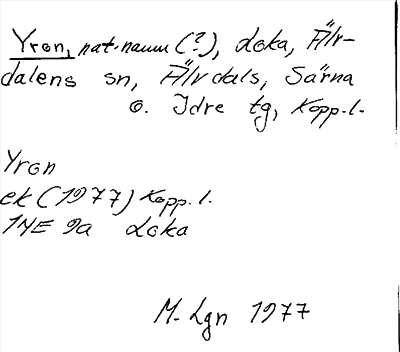 Yron, nat.namn (?), Loka, Älv-
dalens sn, Älvdals, Särna
o. Idre tg, Kopp.l.
Yron
ek (1977) Kopp.l.
14E 9a Loka
M. Lgn 1977